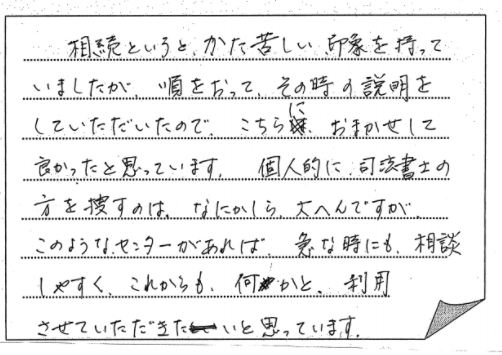 相続というと、かた苦しい印象を持って
いましたが、順をおって、その時の説明を
していただいたので、こちらに、おまかせして
良かったと思っています。個人的に、司法書士の
方を捜すのは、なにかしら、大へんですが、
このようなセンターがあれば、急な時にも、相談
しやすく、これからも、何かと、利用
させていただきたいと思っています。